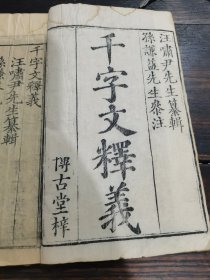 汪嘯尹先生纂輯
孫謙益先生參注
千字文釋義
博古堂梓
千字文釋義
汪嘯尹先生纂輯
孫謙益先生